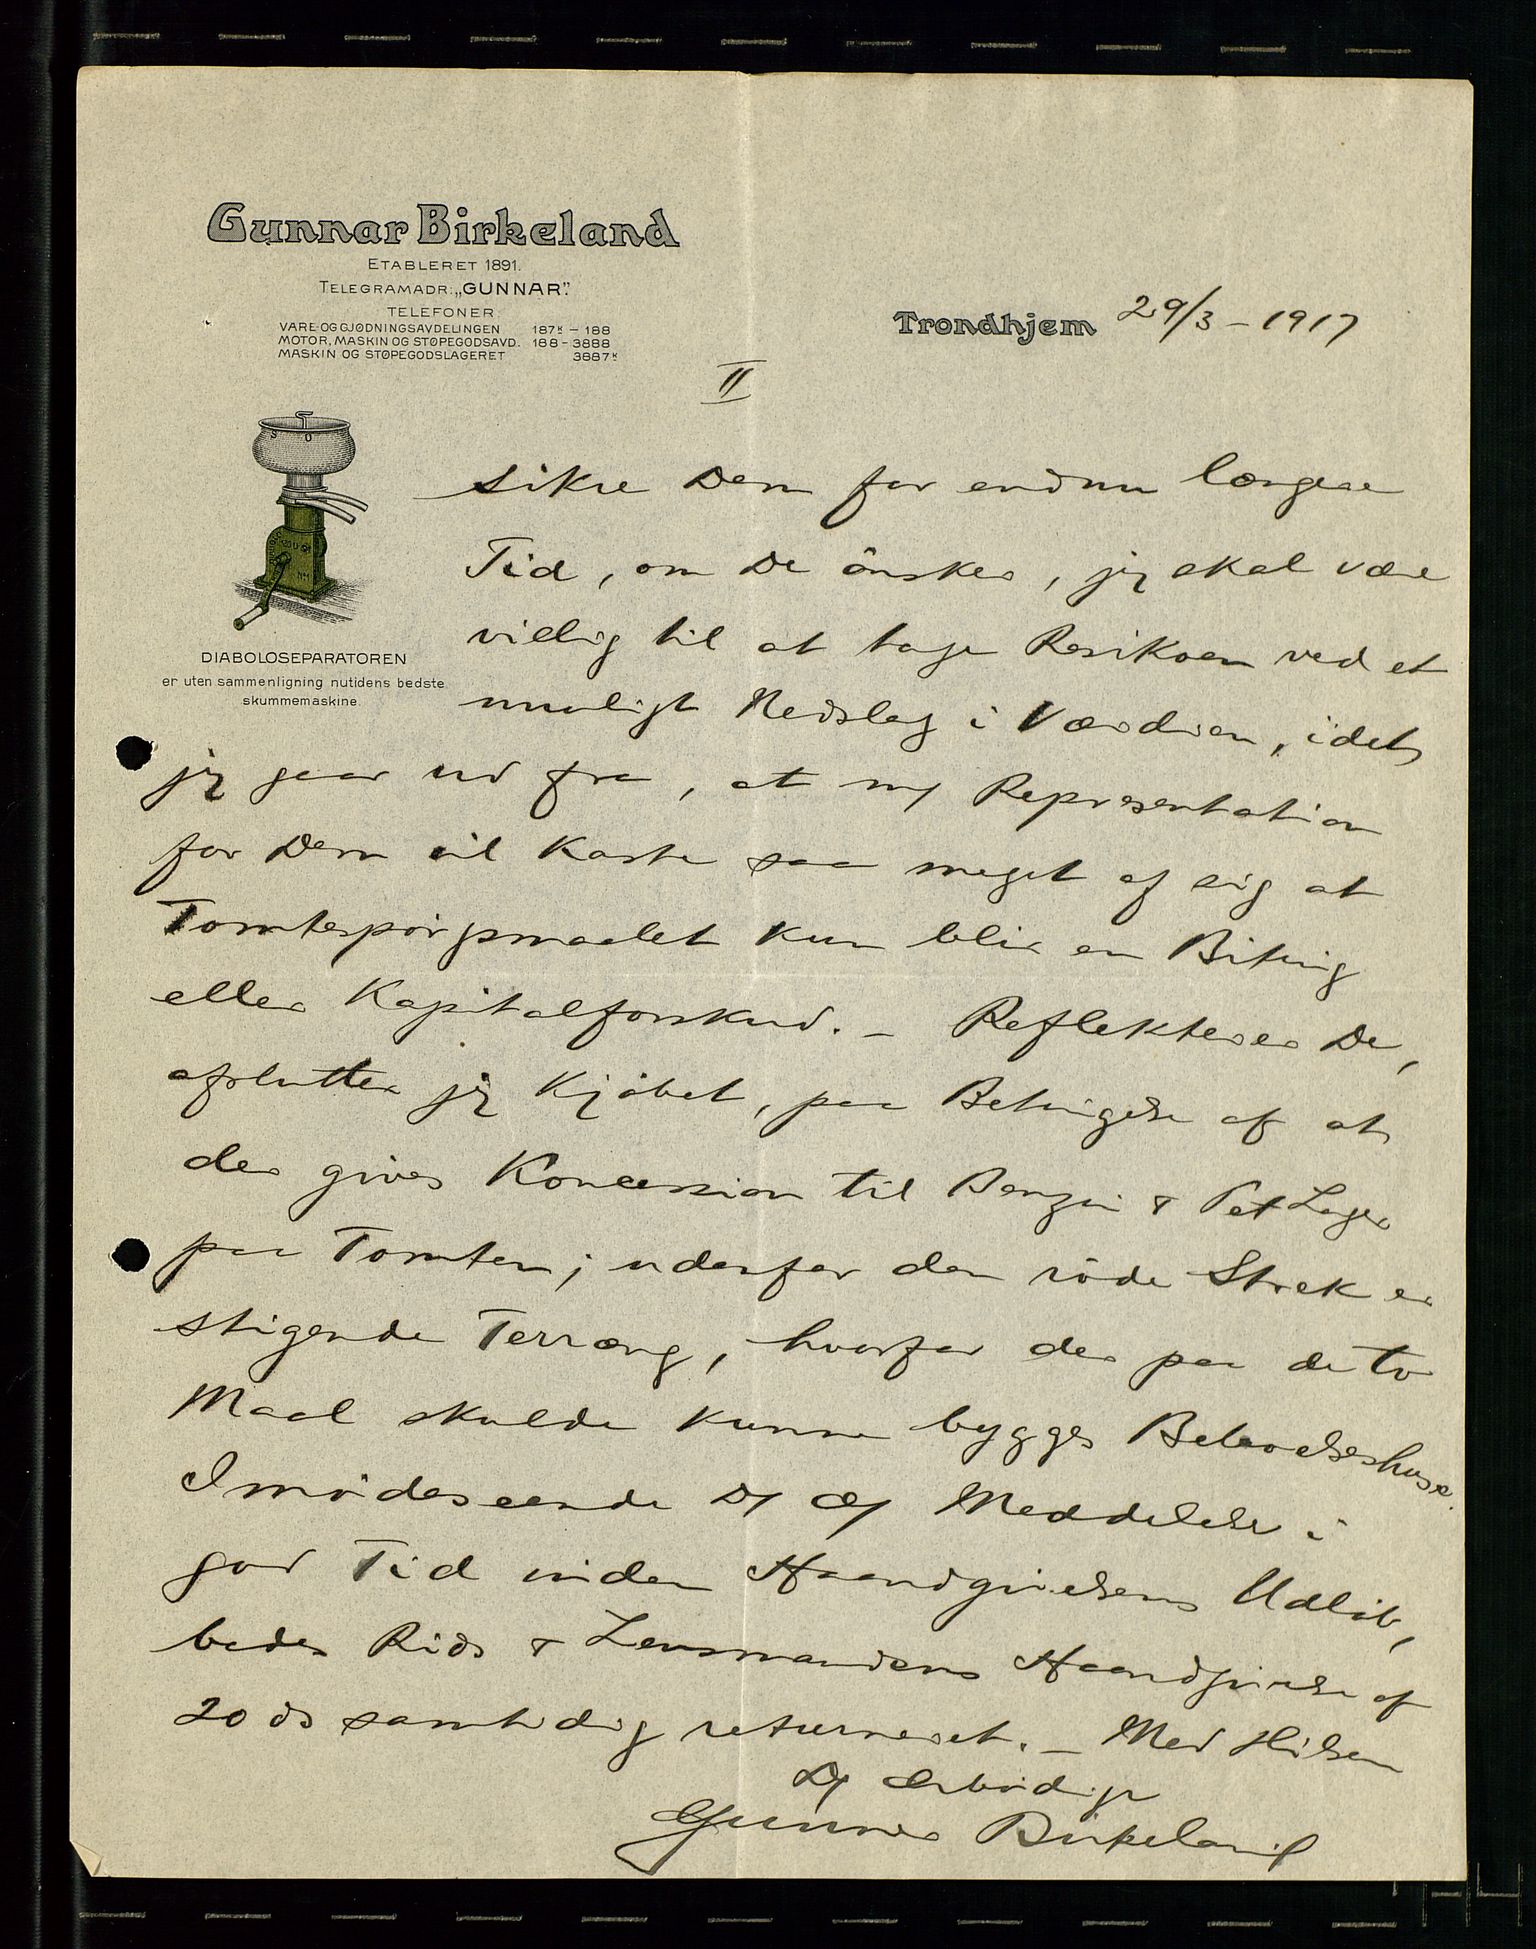 Gunnar Birkeland
ETABLERET 1891.
TELEGRAMADR: „GUNNAR".
TELEFONER
VARE-OG GJØDNINGSAVDELINGEN 187ᴷ – 188
MOTOR, MASKIN OG STØPEGODSAVD. 188 – 3888
MASKIN OG STØPEGODSLAGERET 3887ᴷ
Trondhjem 29/3 – 1917
II
S O
DIABOLOSEPARATOREN
er uten sammenligning nutidens bedste
skummemaskine
sikre Dem for endnu længere
Tid, om De önsker, jeg skal være
villig til at tage Resikoen ved et
muligt Nedslag i Værdien, idet
jeg gaar ud fra, at my Representation
for Dem vil kaste saa meget af sig at
Tomtespörgsmaalet kun blir en Biting
eller Kapitalforskud. – Reflekterer De,
afslutter jeg Kjöbet, paa Betingelse af at
der gives Koncession til Benzin & Pet Lager
paa Tomten; udenfor den röde Strek er
stigende Terræng, hvorfor der paa de to
Maal skulde kunne bygges Beboelseshuse.
Imödeseende Df Meddelelse i
god Tid inden Haandgivelsens Udlöb,
bedes Rids & Lensmandens Haandgivelse af
20 ds samtidig returneret. – Med Hilsen
Df Ærbödige
Gunnar Birkeland